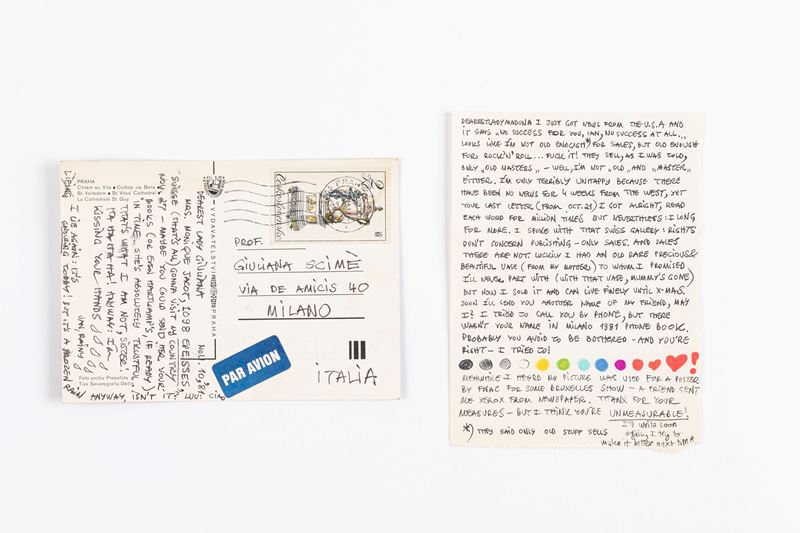 PRAHA
Chrám sv. Víta
St. Veitsdom • St. Vitus' Cathedral
La Cathédrale St. Guy
VYDAVATELSTVÍ
PRAHA
Československo
DEAREST LADY GIULIANA NOV. 10, 81
MRS. MONIQUE JACOT, 1098 EPESSES,
SUISSE (THAT'S ALL) GONNA VISIT MY COUNTRY
NOV. 27 – MAYBE YOU COULD SEND HER YOUR
BOOKS (OR EVEN HARTKAMP'S, IF READY)
IN TIME. SHE'S ABSOLUTELY TRUSTFUL
THAT'S WHAT I AM NOT, SISTER
KISSING YOUR HANDS
JAN, RAINY
I'M AGAIN: IT'S
ANYWAY, ISN'T IT? LUV:
Foto archiv Pressfoto
Tisk Severografia Děčín
PROF.
GIULIANA SCIMÈ
VIA DE AMICIS 40
MILANO
ITALIA
PAR AVION
DEARESTLADYMADONA I JUST GOT NEWS FROM THE U.S.A AND
IT SAYS „NO SUCCESS FOR YOU, IAN, NO SUCCESS AT ALL...
LOOKS LIKE I'M NOT OLD ENOUGH*) FOR SALES, BUT OLD ENOUGH
FOR ROCK'N'ROLL... FUCK IT! THEY SELL, AS I WAS TOLD,
ONLY „OLD MASTERS„ – WELL, I'M NOT „OLD„ AND „MASTER„
EITHER. I'M ONLY TERRIBLY UNHAPPY BECAUSE THERE
HAVE BEEN NO NEWS FOR 4 WEEKS FROM THE WEST, YET
YOUR LAST LETTER (FROM OCT. 21) I GOT ALRIGHT, READ
EACH WORD FOR MILION TIMES BUT NEVERTHELESS: I LONG
FOR MORE. I SPOKE WITH THAT SWISS GALLERY: RIGHTS
DON'T CONCERN PUBLISHING – ONLY SALES. AND SALES
THERE ARE NOT. LUCKILY I HAD AN OLD RARE PRECIOUS &
BEAUTIFUL VASE (FROM MY MOTHER) TO WHOM I PROMISED
I'LL NEVER PART WITH (WITH THAT VASE, MUMMY'S GONE)
BUT NOW I SOLD IT AND CAN LIVE FINELY UNTIL X-MAS.
SOON I'LL SEND YOU ANOTHER NAME OF MY FRIEND, MAY
I? I TRIED TO CALL YOU BY PHONE, BUT THERE
WASN'T YOUR NAME IN MILANO 1981 PHONE BOOK.
PROBABLY YOU AVOID TO BE BOTHERED – AND YOU'RE
RIGHT – I TRIED TO!
MEANWHILE I HEARD MY PICTURE WAS USED FOR A POSTER
BY FNAC FOR SOME BRUXELLES SHOW – A FRIEND SENT
ME XEROX FROM NEWSPAPER. THANX FOR YOUR
MEASURES – BUT I THINK YOU'RE UNMEASURABLE!
I'll write soon
again, I try to
make it better next time
*) THEY SAID ONLY OLD STUFF SELLS